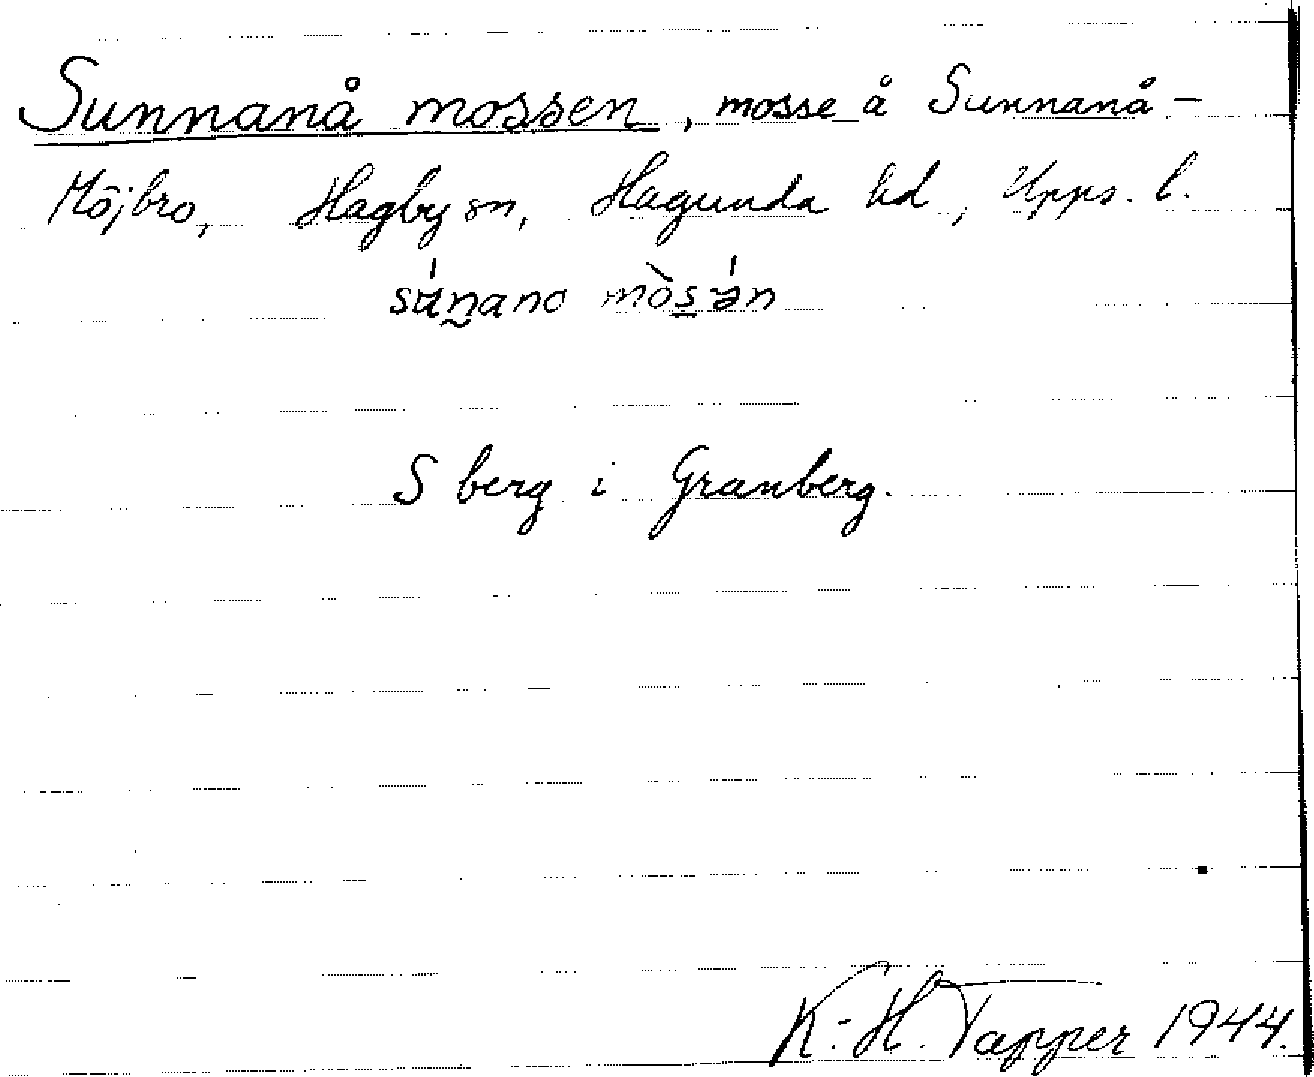 Sunnanå mossen, mosse å Sunnanå-
Möjbro, Hagby sn, Hagunda hd, Upps. l.
S berg i Granberg.
K.-H. Tapper 1944.